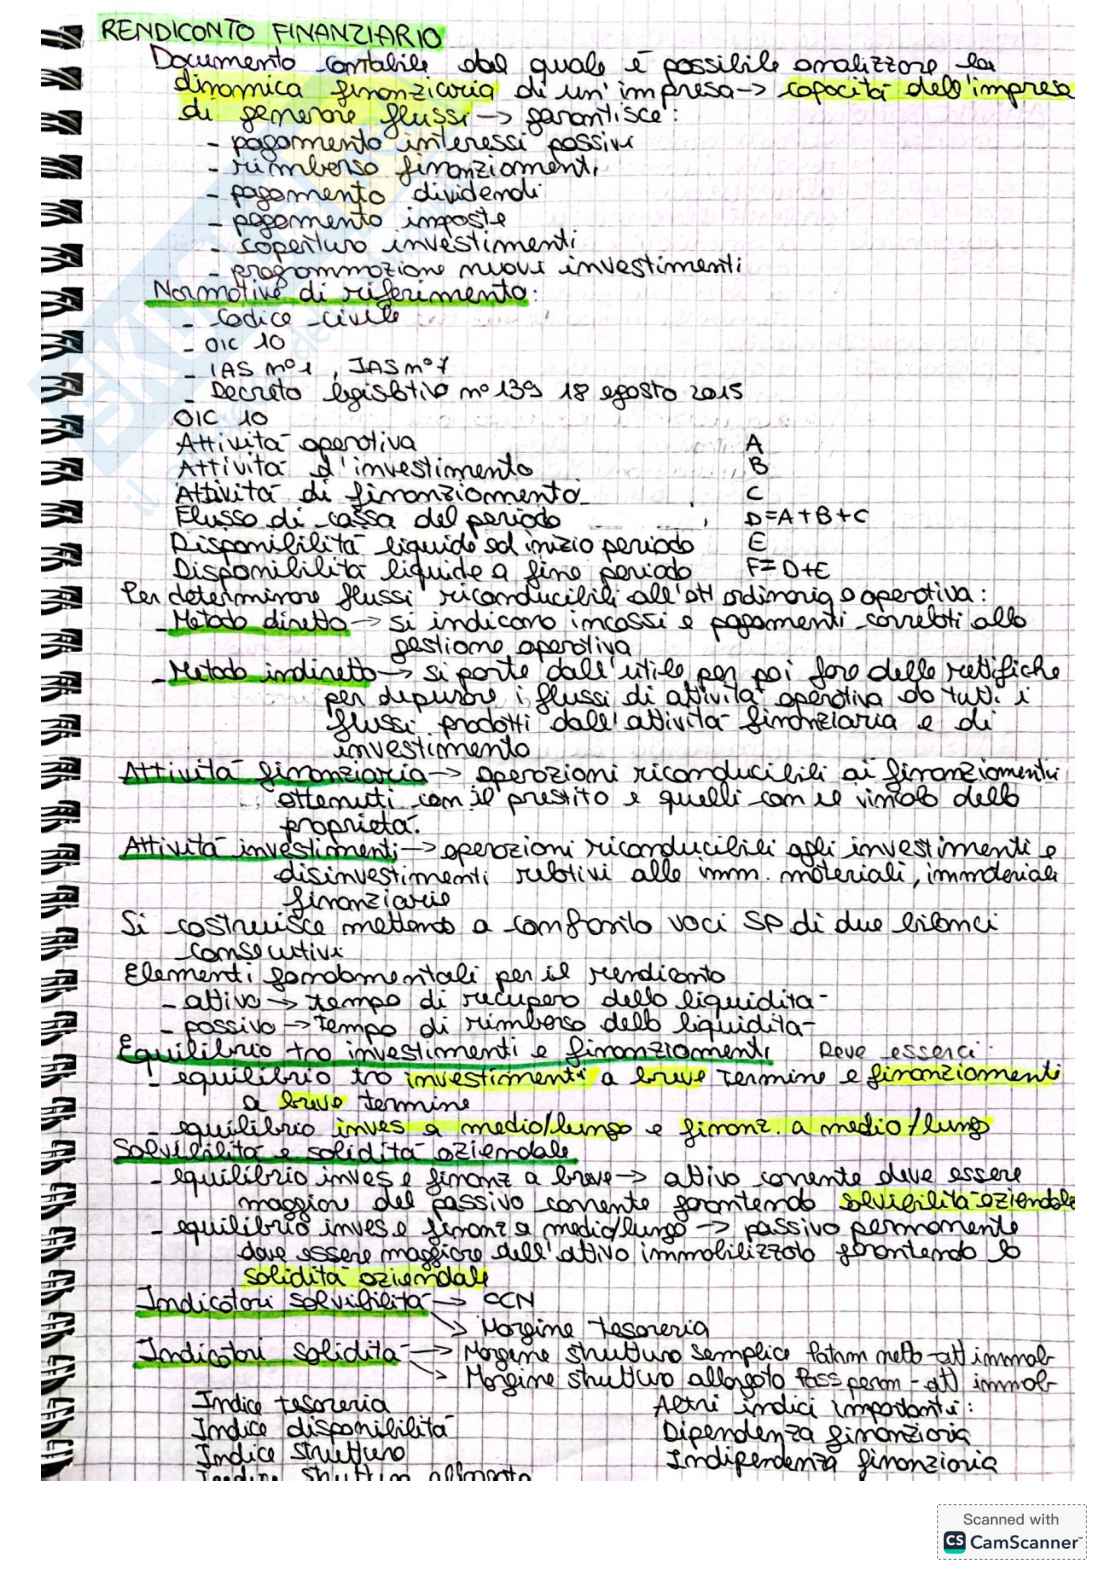 RENDICONTO FINANZIARIO
Documento contabile dal quale è possibile analizzare la
dinamica finanziaria di un'impresa → capacità dell'impresa
di generare flussi → garantisce:
- pagamento interessi passivi
- rimborso finanziamenti
- pagamento dividendi
- pagamento imposte
- copertura investimenti
- programmazione nuovi investimenti
Normative di riferimento:
- Codice civile
- OIC 10
- IAS n°1, IAS n°7
- Decreto legislativo n°139 18 agosto 2015
OIC 10
Attività operativa A
Attività d'investimento B
Attività di finanziamento C
Flusso di cassa del periodo D=A+B+C
Disponibilità liquide ad inizio periodo E
Disponibilità liquide a fine periodo F=D+E
Per determinare flussi riconducibili all'att ordinaria o operativa:
- Metodo diretto → si indicano incassi e pagamenti correlati alla
gestione operativa
- Metodo indiretto → si parte dall'utile per poi fare delle rettifiche
per depurare i flussi di attività operativa da tutti i
flussi prodotti dall'attività finanziaria e di
investimento
Attività finanziaria → operazioni riconducibili ai finanziamenti
ottenuti con il prestito e quelli con il vincolo della
proprietà.
Attività investimenti → operazioni riconducibili agli investimenti e
disinvestimenti relativi alle imm. materiali, immateriali
finanziarie
Si costruisce mettendo a confronto voci SP di due bilanci
consecutivi
Elementi fondamentali per il rendiconto
- attivo → tempo di recupero della liquidità
- passivo → tempo di rimborso della liquidità
Equilibrio tra investimenti e finanziamenti Deve esserci:
- equilibrio tra investimenti a breve termine e finanziamenti
a breve termine
- equilibrio inves a medio/lungo e finanz. a medio/lungo
Solvibilità e solidità aziendale
- equilibrio inves e finanz a breve → attivo corrente deve essere
maggiore del passivo corrente garantendo solvibilità aziendale
- equilibrio inves e finanz a medio/lungo → passivo permanente
deve essere maggiore dell'attivo immobilizzato garantendo la
solidità aziendale
Indicatori solvibilità → CCN
→ Margine tesoreria
Indicatori solidità → Margine struttura semplice Patrim netto - att immob
→ Margine struttura allargato Pass perm - att immob
Indice tesoreria Altri indici importanti:
Indice disponibilità Dipendenza finanziaria
Indice struttura Indipendenza finanziaria
Indice struttura allargata
Scanned with
CS CamScanner